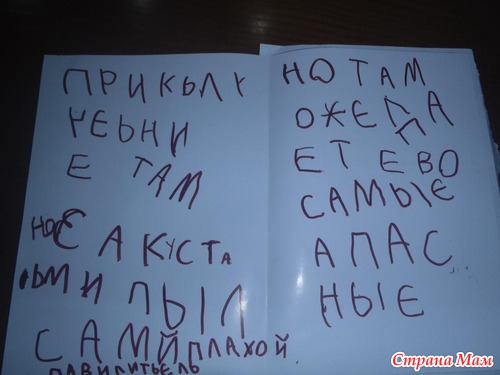 ПРИКЬЛУ
ЧЕЬНИ
Е ТАМ
НОЕ А КУСТА
ЬМИ ПЫЛ
САМЙ ПЛАХОЙ
ПАВИЛИТЬЕЛЬ
НО ТАМ
ОЖЕДА
ЕТ ЕВО
САМЫЕ
АПАС
НЫЕ
Страна Мам